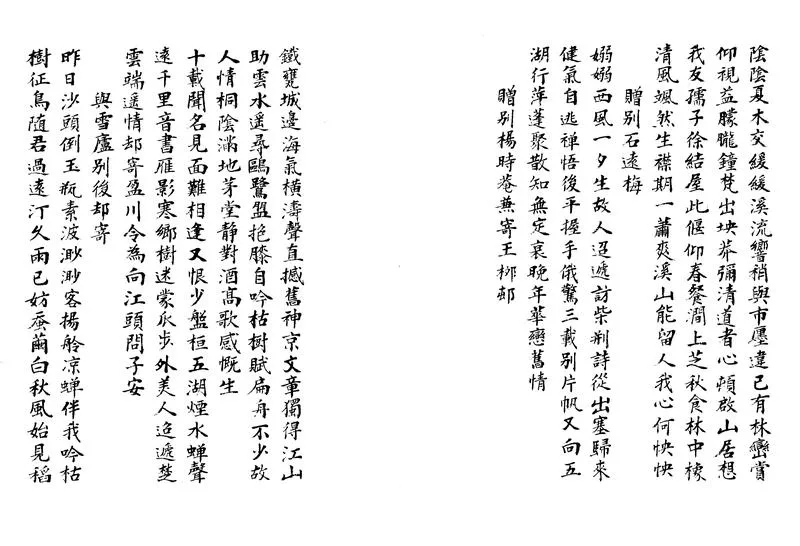 陰陰夏木交緩緩溪流響稍與市廛違已有林巒賞
仰視益朦朧鐘梵出坱莽彌清道者心頓啟山居想
我友孺子徐結屋此偃仰春餐澗上芝秋食林中橡
清風颯然生襟期一蕭爽溪山能留人我心何怏怏
贈別石遠梅
嫋嫋西風一夕生故人迢遞訪柴荆詩從出塞歸來
健氣自逃禅悟後平握手俄驚三載別片帆又向五
湖行萍蓬聚散知無定哀晚年華戀舊情
贈別楊時菴兼寄王柳邨
鐵甕城邊海氣橫濤聲直撼舊神京文章獨得江山
助雲水遥尋鷗鷺盟抱膝自吟枯树賦扁舟不少故
人情桐陰滿地茅堂静對酒高歌感慨生
十載聞名見面難相逢又恨少盤桓五湖煙水蝉聲
遠千里音書雁影寒鄉樹迷蒙瓜步外美人迢遞楚
雲端遥情却寄盈川令為向江頭問子安
與雪廬別後却寄
昨日沙頭倒玉瓶素波渺渺客揚舲凉蝉伴我吟枯
樹征鳥随君過遠汀久雨已妨蚕繭白秋風始見稻